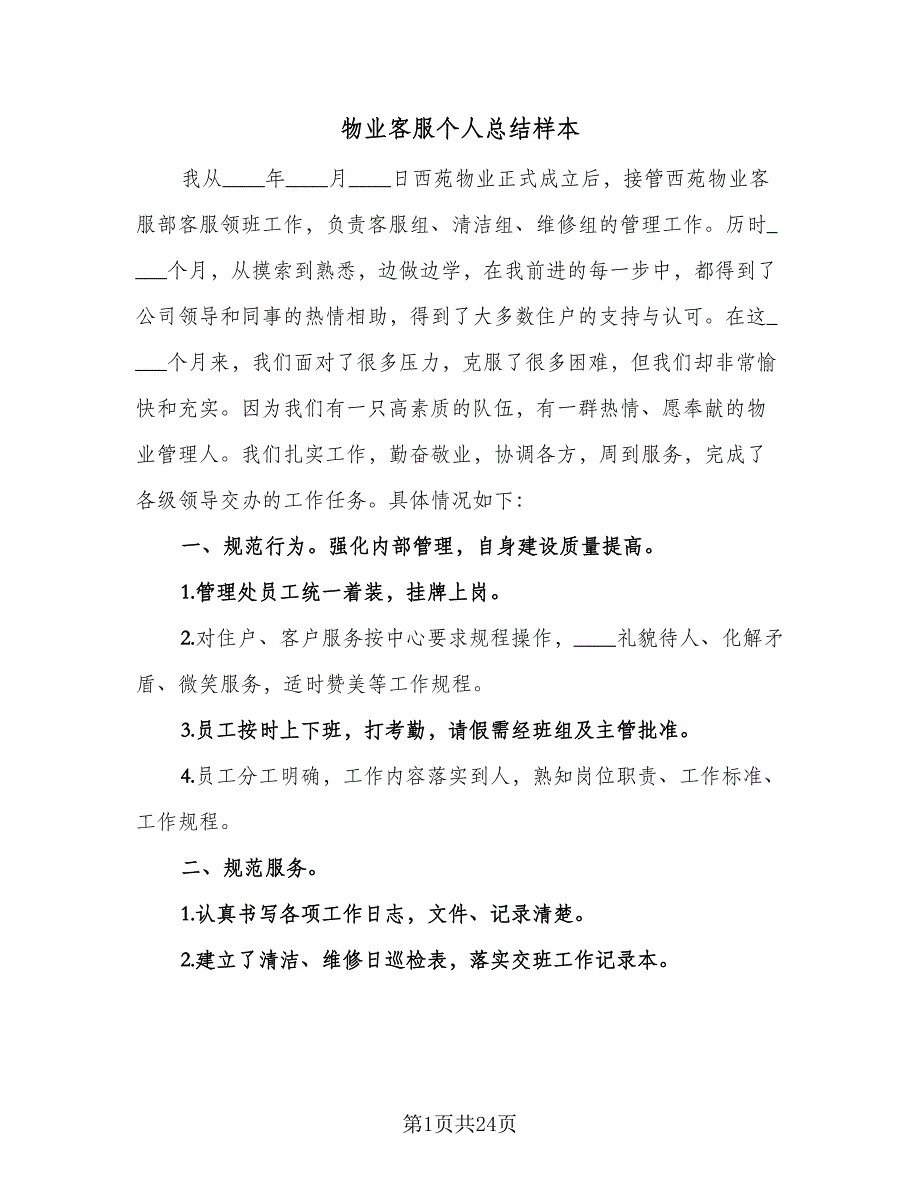 物业客服个人总结样本
我从____年____月____日西苑物业正式成立后，接管西苑物业客
服部客服领班工作，负责客服组、清洁组、维修组的管理工作。历时_
___个月，从摸索到熟悉，边做边学，在我前进的每一步中，都得到了
公司领导和同事的热情相助，得到了大多数住户的支持与认可。在这_
___个月来，我们面对了很多压力，克服了很多困难，但我们却非常愉
快和充实。因为我们有一只高素质的队伍，有一群热情、愿奉献的物
业管理人。我们扎实工作，勤奋敬业，协调各方，周到服务，完成了
各级领导交办的工作任务。具体情况如下：
一、规范行为。强化内部管理，自身建设质量提高。
1.管理处员工统一着装，挂牌上岗。
2.对住户、客户服务按中心要求规程操作，____礼貌待人、化解矛
盾、微笑服务，适时赞美等工作规程。
3.员工按时上下班，打考勤，请假需经班组及主管批准。
4.员工分工明确，工作内容落实到人，熟知岗位职责、工作标准、
工作规程。
二、规范服务。
1.认真书写各项工作日志，文件、记录清楚。
2.建立了清洁、维修日巡检表，落实交班工作记录本。
第1页共24页